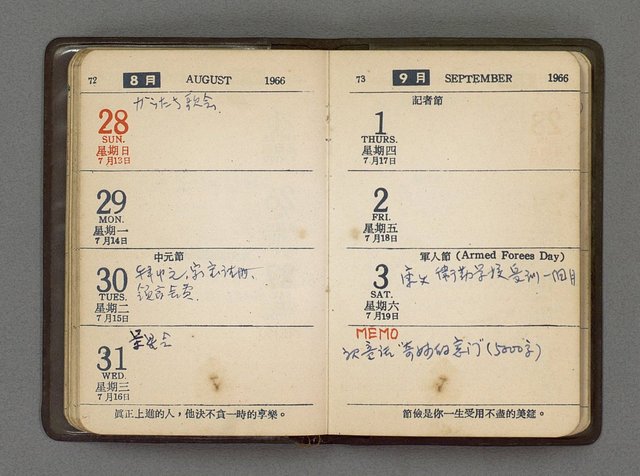 72 8月 AUGUST 1966
28
SUN.
星期日
7月13日
からたち歌会
29
MON.
星期一
7月14日
中元節
30
TUES.
星期二
7月15日
拜中元
31
WED.
星期三
7月16日
眞正上進的人，他決不貪一時的享樂。
73 9月 SEPTEMBER 1966
記者節
1
THURS.
星期四
7月17日
2
FRI.
星期五
7月18日
軍人節 (Armed Forees Day)
3
SAT.
星期六
7月19日
衛勤学校受訓一個月
MEMO
"奇妙的家门" (5000字)
節儉是你一生受用不盡的美筵。